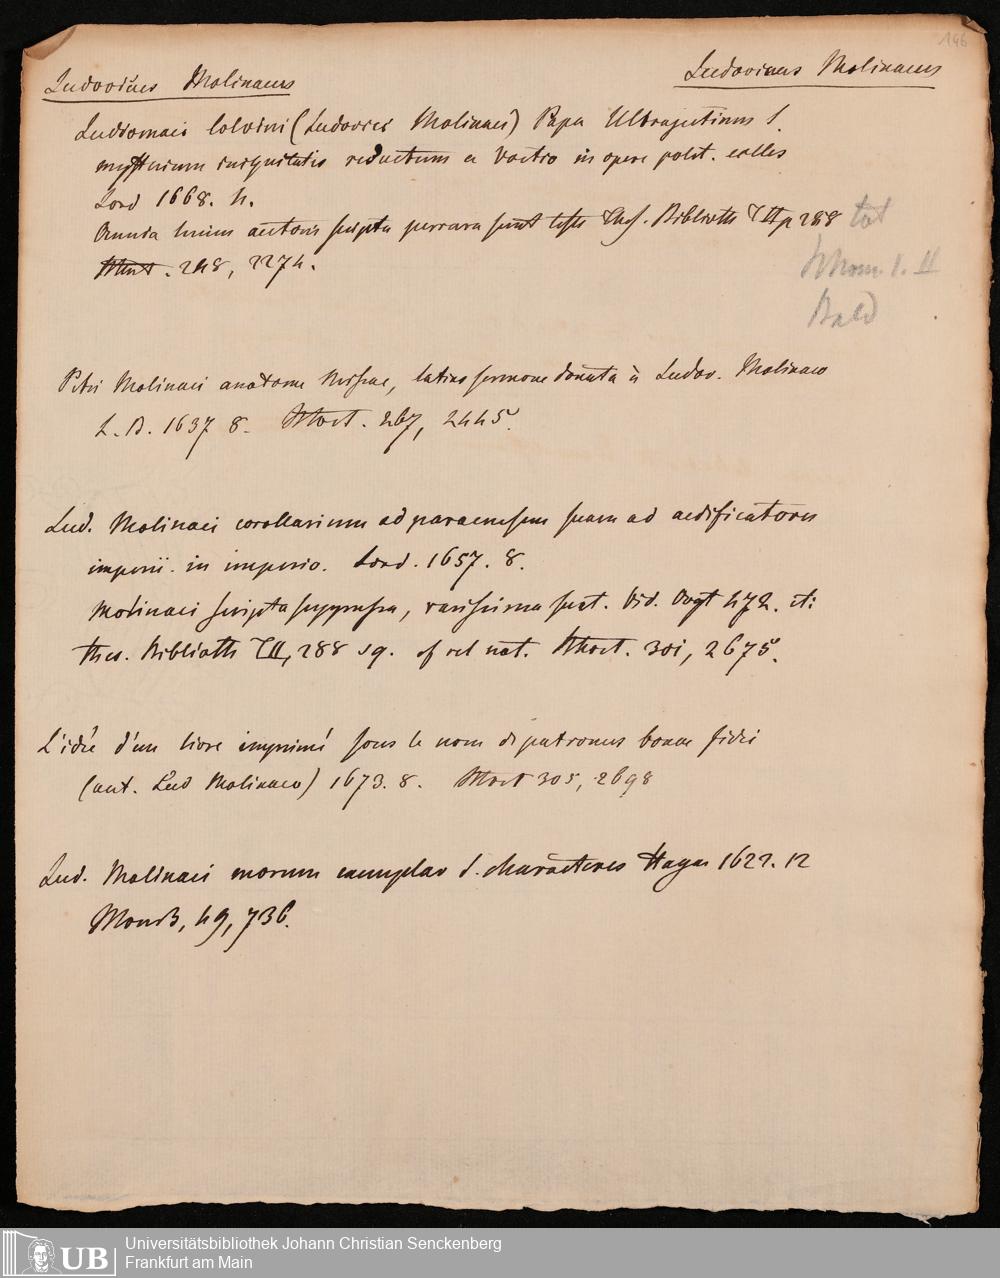 146
Ludovicus Molinaeus
Ludovicus Molinaeus
Ludiomaei Colvini (Ludovici Molinaei) Papa Ultrajectinus s.
mysterium iniquitatis reductum a Voetio in opere polit. eccles
Lond 1668. 4.
Omnia huius autoris scripta perrara sunt teste Thes. Biblioth T II p 288
248, 2274.
tot
I. II
Bald
Petri Molinaei anatome missae, latino sermone donata à Ludov. Molinaeo
L. B. 1637 8. 267, 2445.
Lud. Molinaei corollarium ad paraenesin suam ad aedificatores
imperii in imperio. Lond. 1657. 8.
Molinaei scripta suppressa, rarissima sunt. Vid. Vogt 472. it:
thes. Biblioth T II, 288 sq. of rel nat. 301, 2675.
L'idée d'un livre imprimé sous le nom de patronus bonae fidei
(aut. Lud Molinaeo) 1673. 8. 305, 2698
Lud. Molinaei morum exemplar s. characteres Hagae 1622. 12
49, 736.
UB
Universitätsbibliothek Johann Christian Senckenberg
Frankfurt am Main